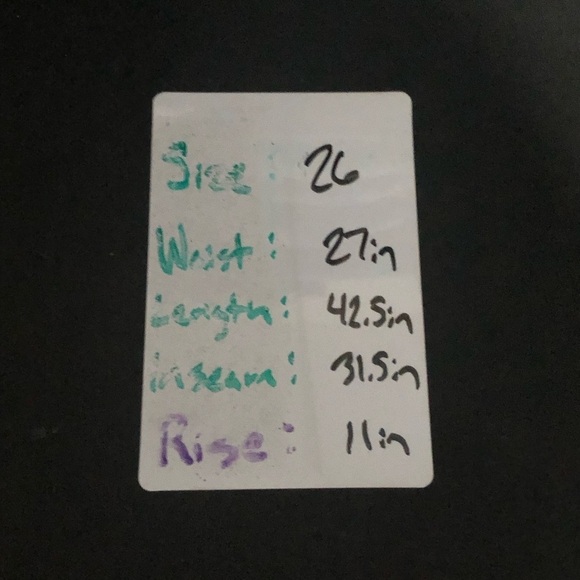 Size: 26
Waist: 27in
Length: 42.5in
inseam: 31.5in
Rise: 11in